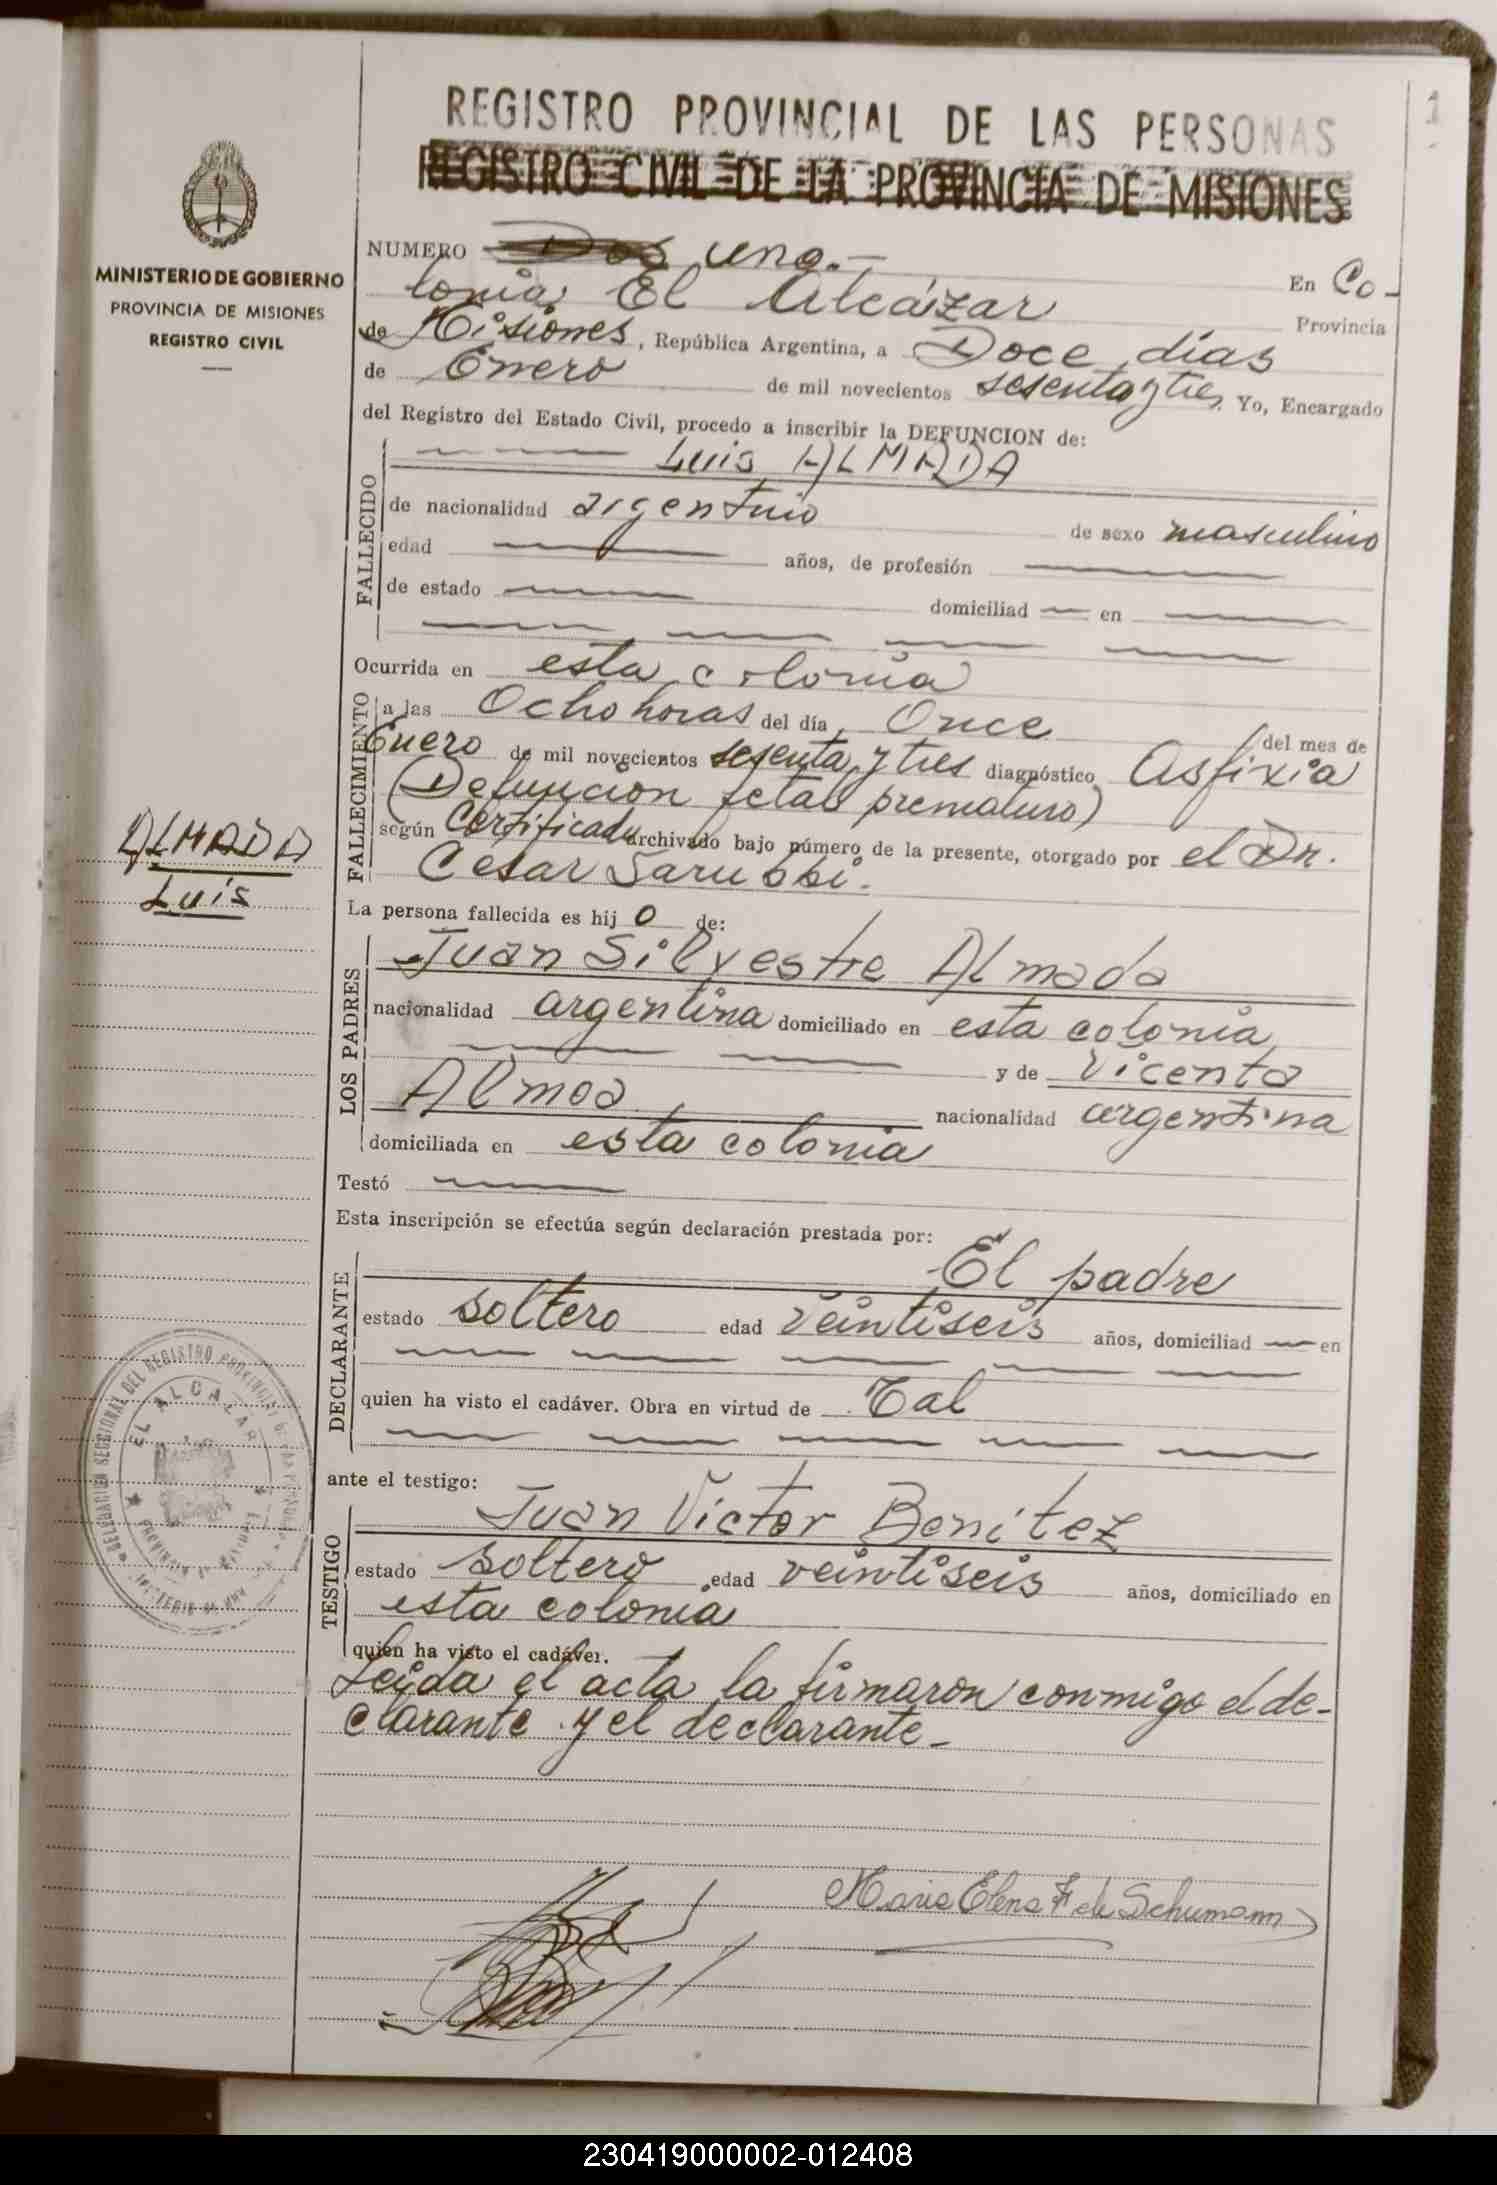 1
REGISTRO PROVINCIAL DE LAS PERSONAS
REGISTRO CIVIL DE LA PROVINCIA DE MISIONES
MINISTERIO DE GOBIERNO
PROVINCIA DE MISIONES
REGISTRO CIVIL
NUMERO Dos uno.- En Co-
lonia El Alcázar Provincia
de Misiones, República Argentina, a Doce días
de Enero de mil novecientos sesenta y tres, Yo, Encargado
del Registro del Estado Civil, procedo a inscribir la DEFUNCION de:
FALLECIDO
Luis ALMADA
de nacionalidad argentino de sexo masculino
edad años, de profesión
de estado domiciliad en
Ocurrida en esta colonia
FALLECIMIENTO
a las Ocho horas del día Once del mes de
Enero de mil novecientos sesenta y tres diagnóstico Asfixia
(Defuncion fetal prematuro)
según Certificado archivado bajo número de la presente, otorgado por el Dr.
Cesar Sarubbi.
ALMADA
Luis
La persona fallecida es hij o de:
LOS PADRES
Juan Silvestre Almada
nacionalidad argentina domiciliado en esta colonia
y de Vicenta
Almoa nacionalidad argentina
domiciliada en esta colonia
Testó
Esta inscripción se efectúa según declaración prestada por:
DECLARANTE
El padre
estado soltero edad veintiseis años, domiciliad en
quien ha visto el cadáver. Obra en virtud de Tal
DELEGACION SECCIONAL DEL REGISTRO PROVINCIAL DE LAS PERSONAS
EL ALCAZAR
PROVINCIA DE MISIONES
ante el testigo:
TESTIGO
Juan Victor Benitez
estado soltero edad veintiseis años, domiciliado en
esta colonia
quien ha visto el cadáver.
Leida el acta la firmaron conmigo el de-
clarante y el declarante-
Maria Elena F de Schumann
230419000002-012408